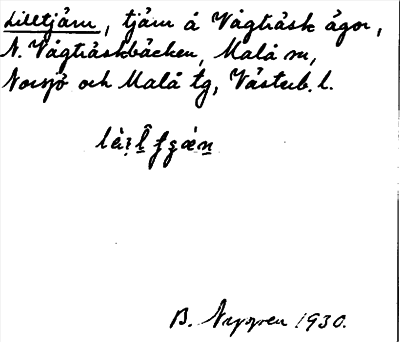 Lilletjärn, tjärn å Vägträsk ägor,
N. Vägträskbäcken, Malå sn,
Norsjö och Malå tg, Västerb. l.
B. Nygren 1930.